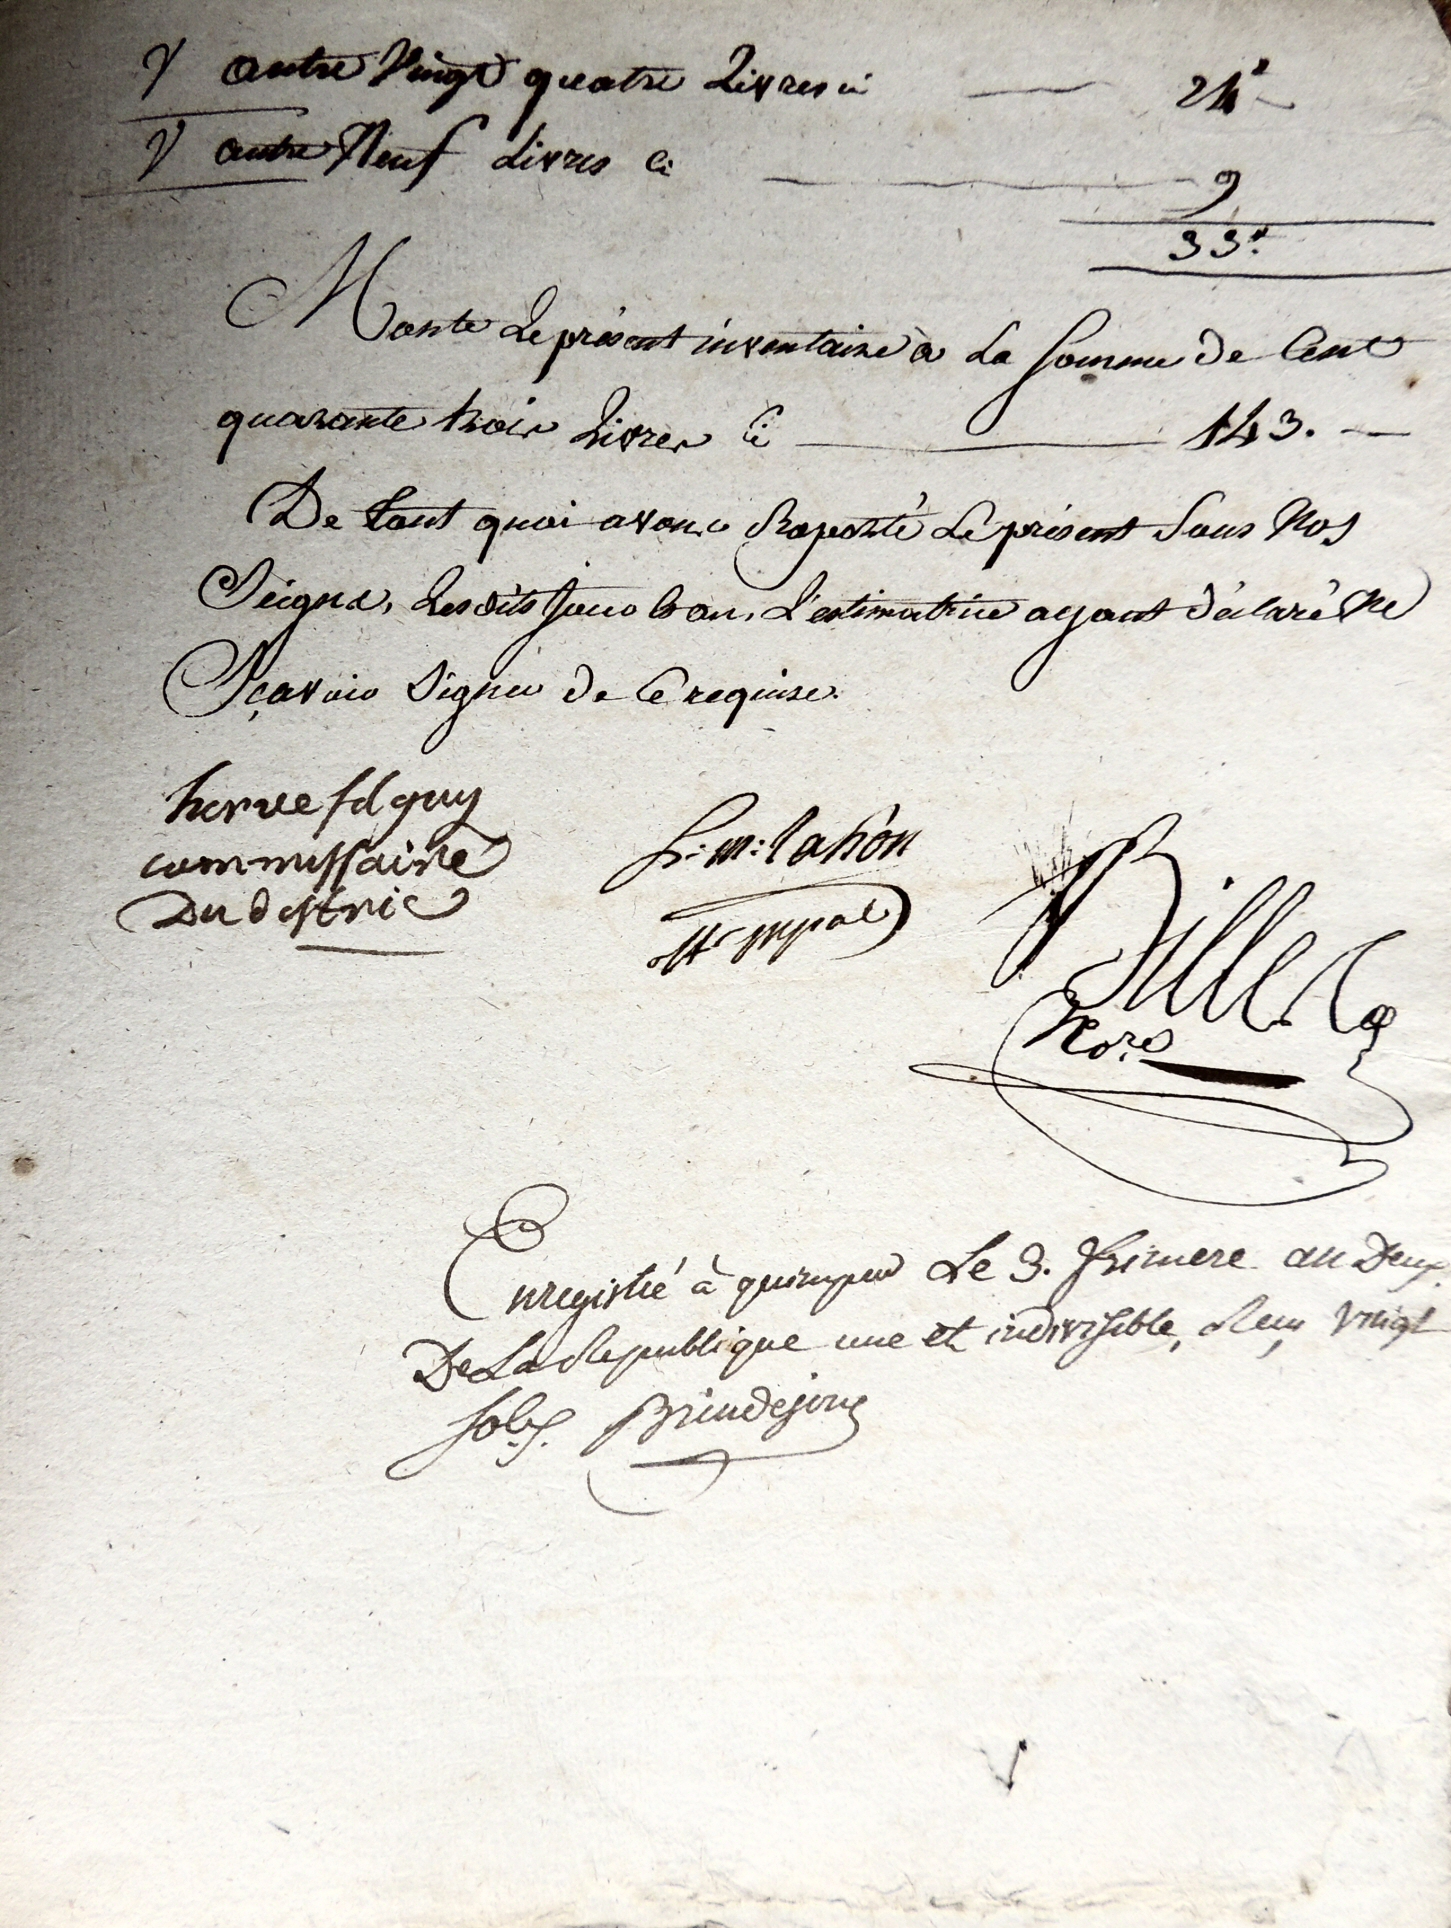 autre Vingt quatre Livres ci 24#
autre Neuf Livres ci 9
33#
Monte Le présent inventaire à La Somme de Cent
quarante trois Livres Ci 143.
De tout quoi avons Raporté Le présent Sous Nos
Seigns, Lesdits jour & an, L'estimatrice ayant déclaré Ne
Sçavoir Signer de Ce requise.
herve
commissaire
Du distric
h: m: lahon
off. mpal
Billet
No.re
Enregistré à quimper Le 3. frimere an Deux
De La Republique une et indivisible, Reçu Vingt
sols. Brindejonc